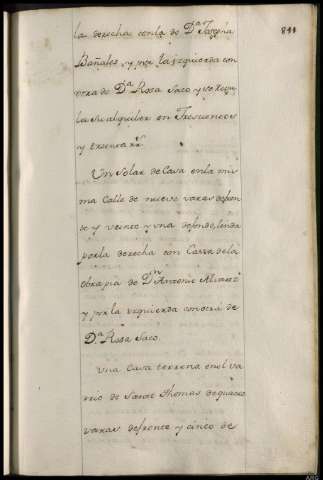 841
la derecha conla de D.ª Josepha
Bañales y por la Izquierda con
otra de D.ª Rosa Saco y se Regu
la su alquiler en Trescientos
y treinta rr.ˢ
Un Solar de Casa enla mis
ma Calle de nueve varas defren
te y veinte y una defondo, linda
porla derecha con Cassa dela
obra pia de D.ⁿ Antonio Alvarez
y por la izquierda con otra de
D.ª Rosa Saco.
Una Casa terrena en el va
rrio de Santo Thomas de quatro
varas defronte y cinco de